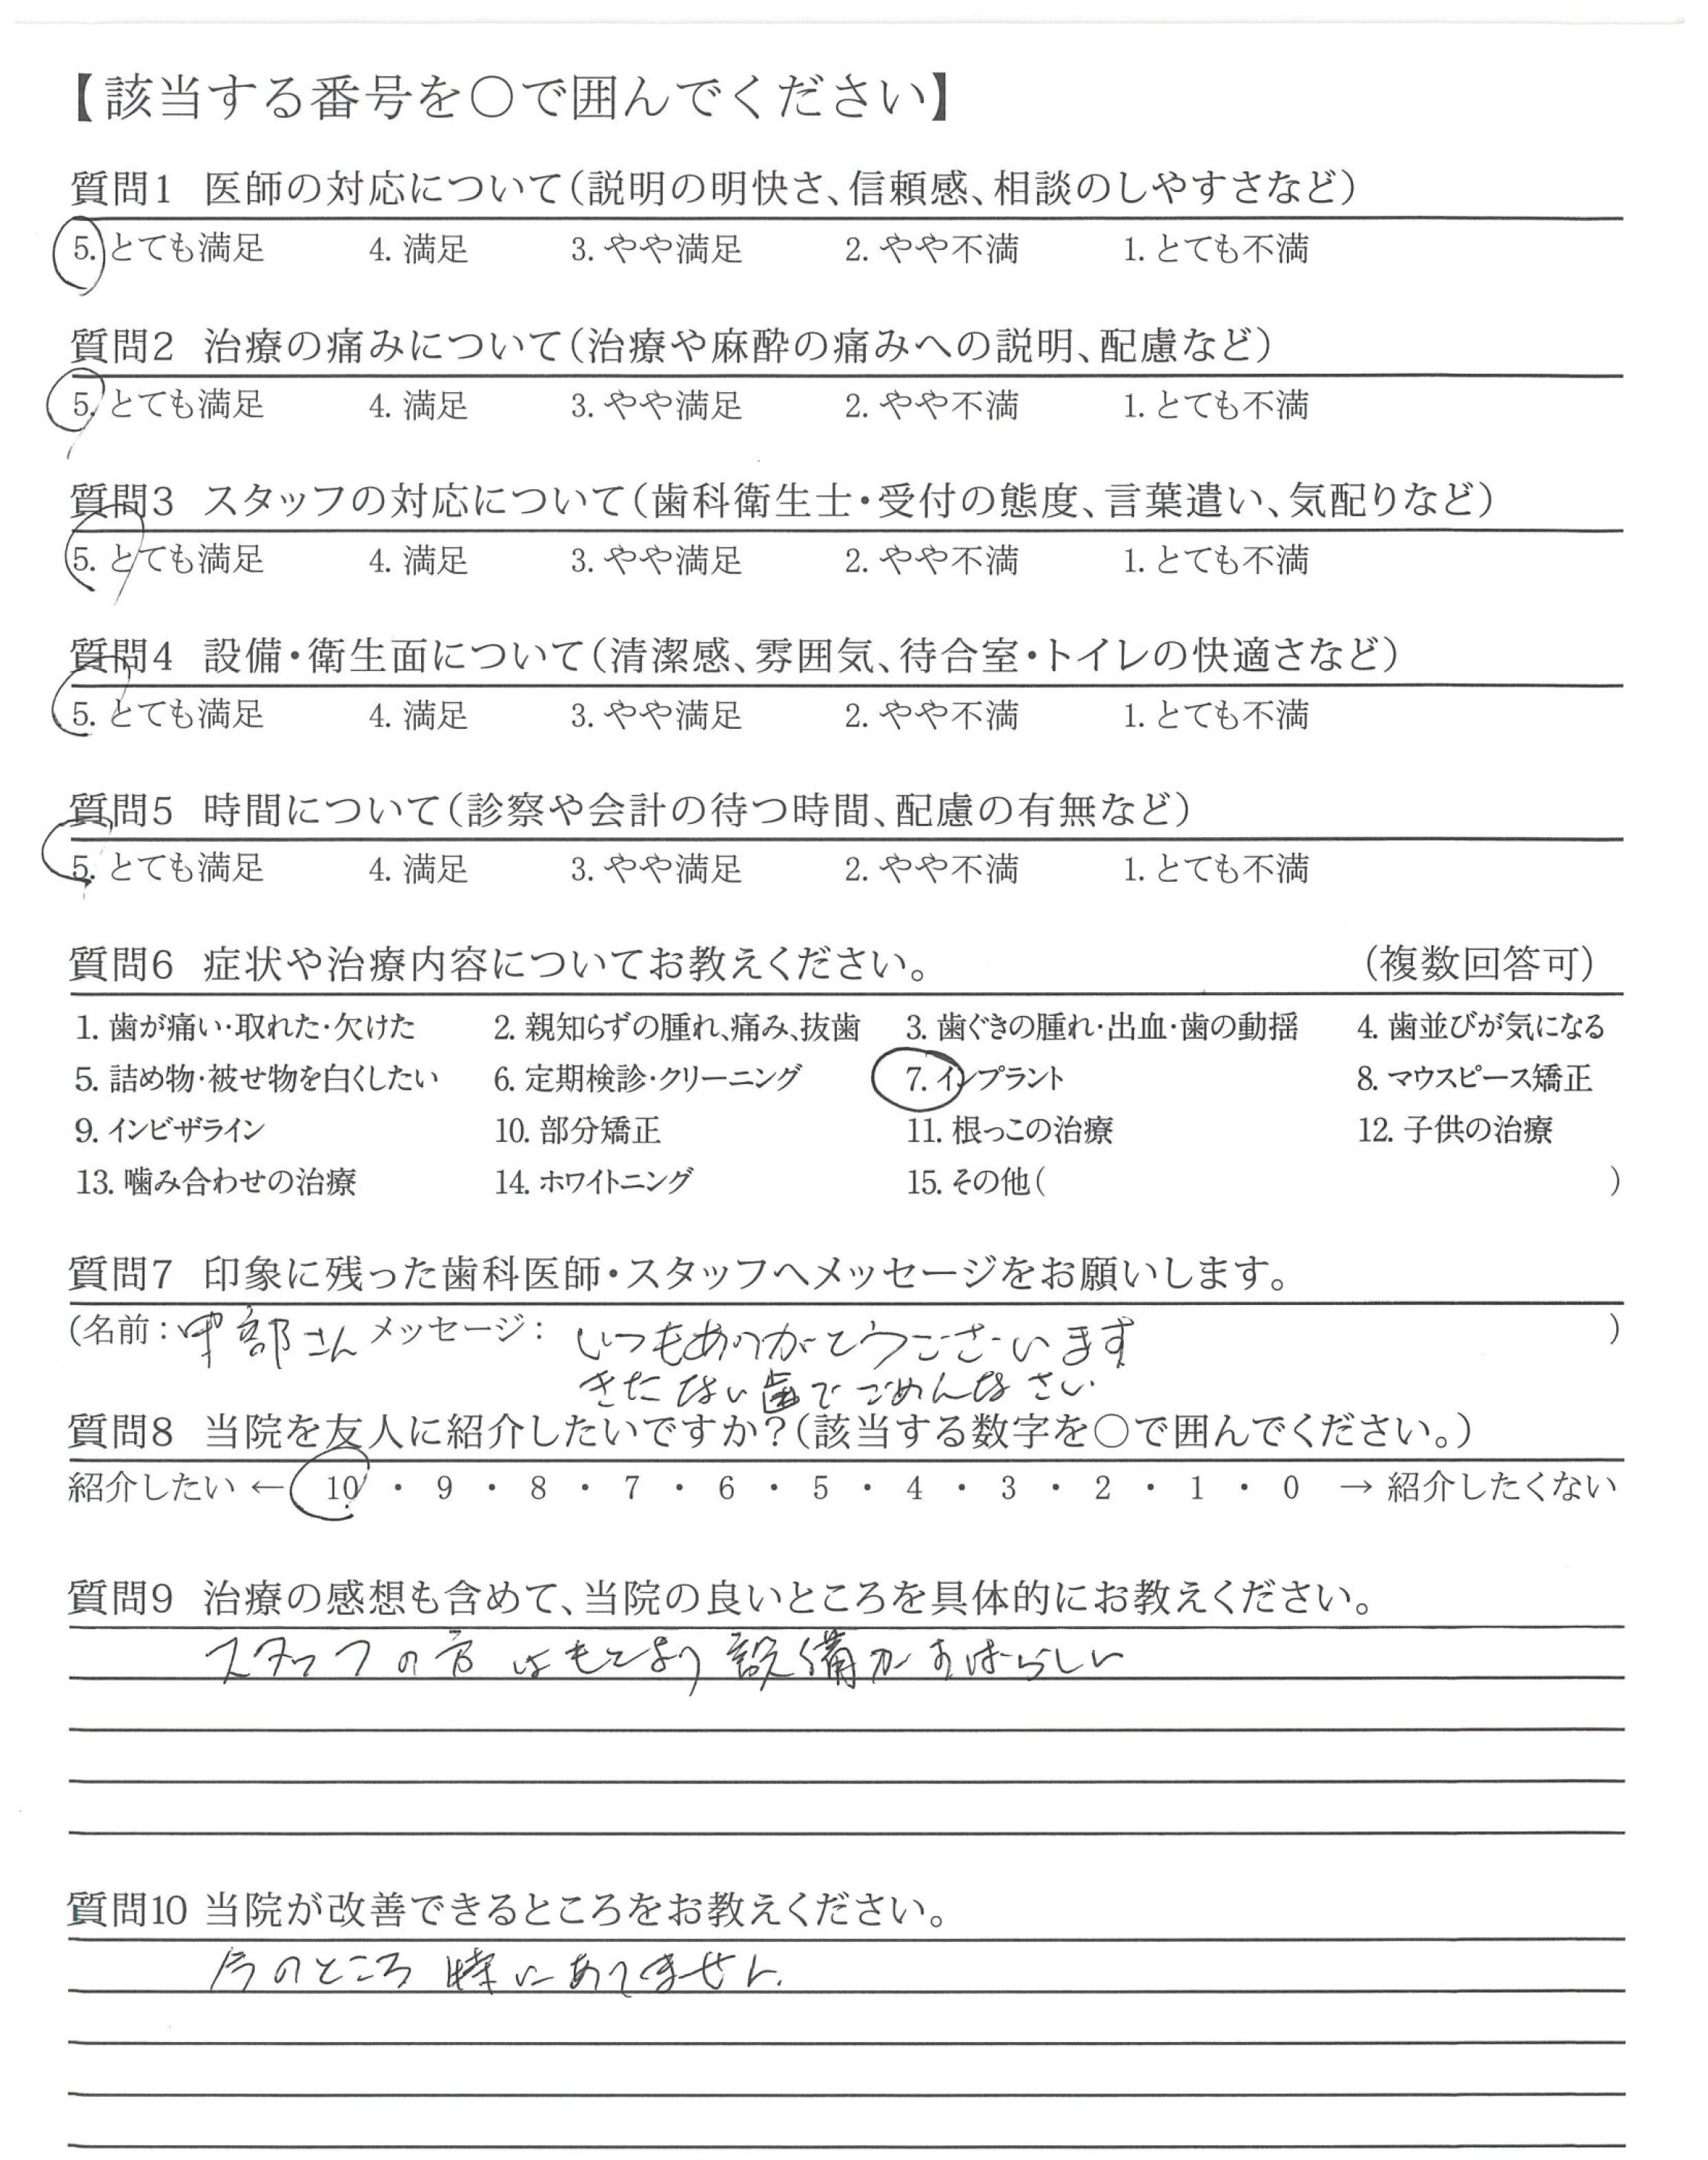 【該当する番号を○で囲んでください】
質問1 医師の対応について(説明の明快さ、信頼感、相談のしやすさなど)
5. とても満足 4. 満足 3. やや満足 2. やや不満 1. とても不満
質問2 治療の痛みについて(治療や麻酔の痛みへの説明、配慮など)
5. とても満足 4. 満足 3. やや満足 2. やや不満 1. とても不満
質問3 スタッフの対応について(歯科衛生士・受付の態度、言葉遣い、気配りなど)
5. とても満足 4. 満足 3. やや満足 2. やや不満 1. とても不満
質問4 設備・衛生面について(清潔感、雰囲気、待合室・トイレの快適さなど)
5. とても満足 4. 満足 3. やや満足 2. やや不満 1. とても不満
質問5 時間について(診察や会計の待つ時間、配慮の有無など)
5. とても満足 4. 満足 3. やや満足 2. やや不満 1. とても不満
質問6 症状や治療内容についてお教えください。 (複数回答可)
1. 歯が痛い・取れた・欠けた 2. 親知らずの腫れ、痛み、抜歯 3. 歯ぐきの腫れ・出血・歯の動揺 4. 歯並びが気になる
5. 詰め物・被せ物を白くしたい 6. 定期検診・クリーニング 7. インプラント 8. マウスピース矯正
9. インビザライン 10. 部分矯正 11. 根っこの治療 12. 子供の治療
13. 噛み合わせの治療 14. ホワイトニング 15. その他( )
質問7 印象に残った歯科医師・スタッフへメッセージをお願いします。
(名前: 部さん メッセージ: いつもありがとうございます )
きたない歯でごめんなさい
質問8 当院を友人に紹介したいですか?(該当する数字を○で囲んでください。)
紹介したい ← 10 ・ 9 ・ 8 ・ 7 ・ 6 ・ 5 ・ 4 ・ 3 ・ 2 ・ 1 ・ 0 → 紹介したくない
質問9 治療の感想も含めて、当院の良いところを具体的にお教えください。
スタッフの方はもとより設備がすばらしい
質問10 当院が改善できるところをお教えください。
今のところ特にありません